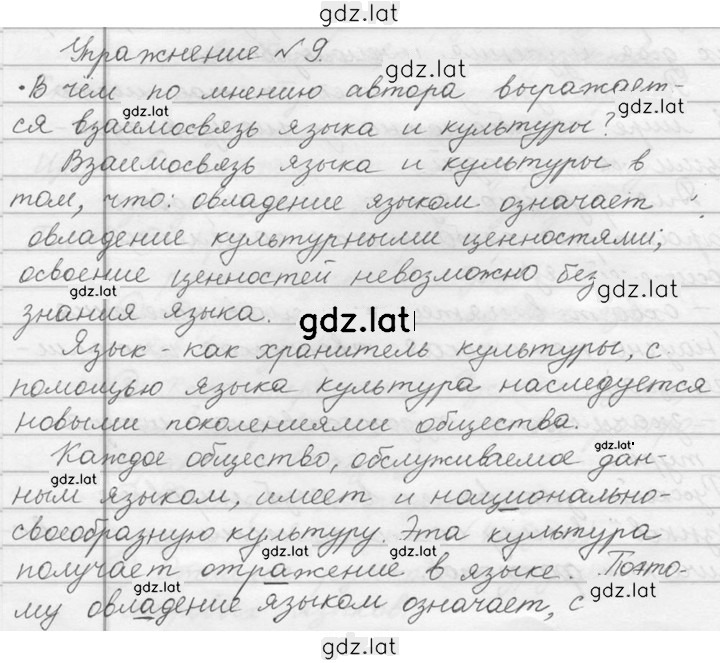 gdz.lat
Упражнение №9.
gdz.lat
• В чём по мнению автора выражает-
gdz.lat gdz.lat
ся взаимосвязь языка и культуры?
Взаимосвязь языка и культуры в
том, что: овладение языком означает
овладение культурными ценностями;
освоение ценностей невозможно без
gdz.lat gdz.lat
знания языка.
gdz.lat
Язык - как хранитель культуры, с
помощью языка культура наследуется
новыми поколениями общества.
gdz.lat
Каждое общество, обслуживаемое дан-
gdz.lat
ным языком, имеет и национально-
своеобразную культуру. Эта культура
gdz.lat gdz.lat
получает отражение в языке. Поэто-
gdz.lat gdz.lat
му овладение языком означает, с
gdz.lat